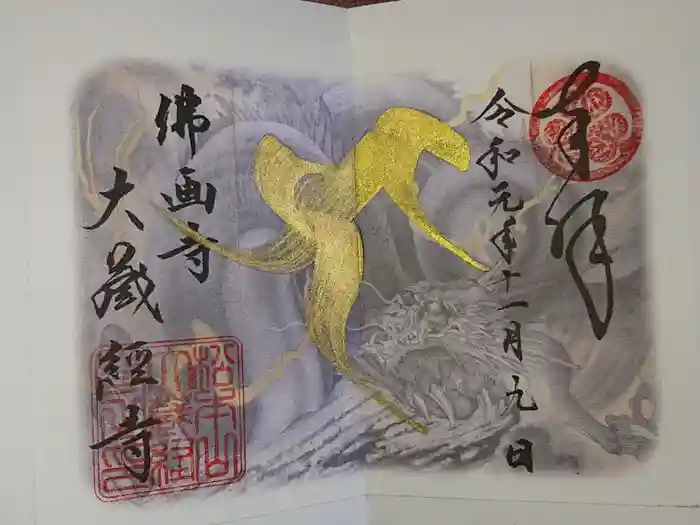 奉拝
令和元年十一月九日
佛画寺
大蔵経寺